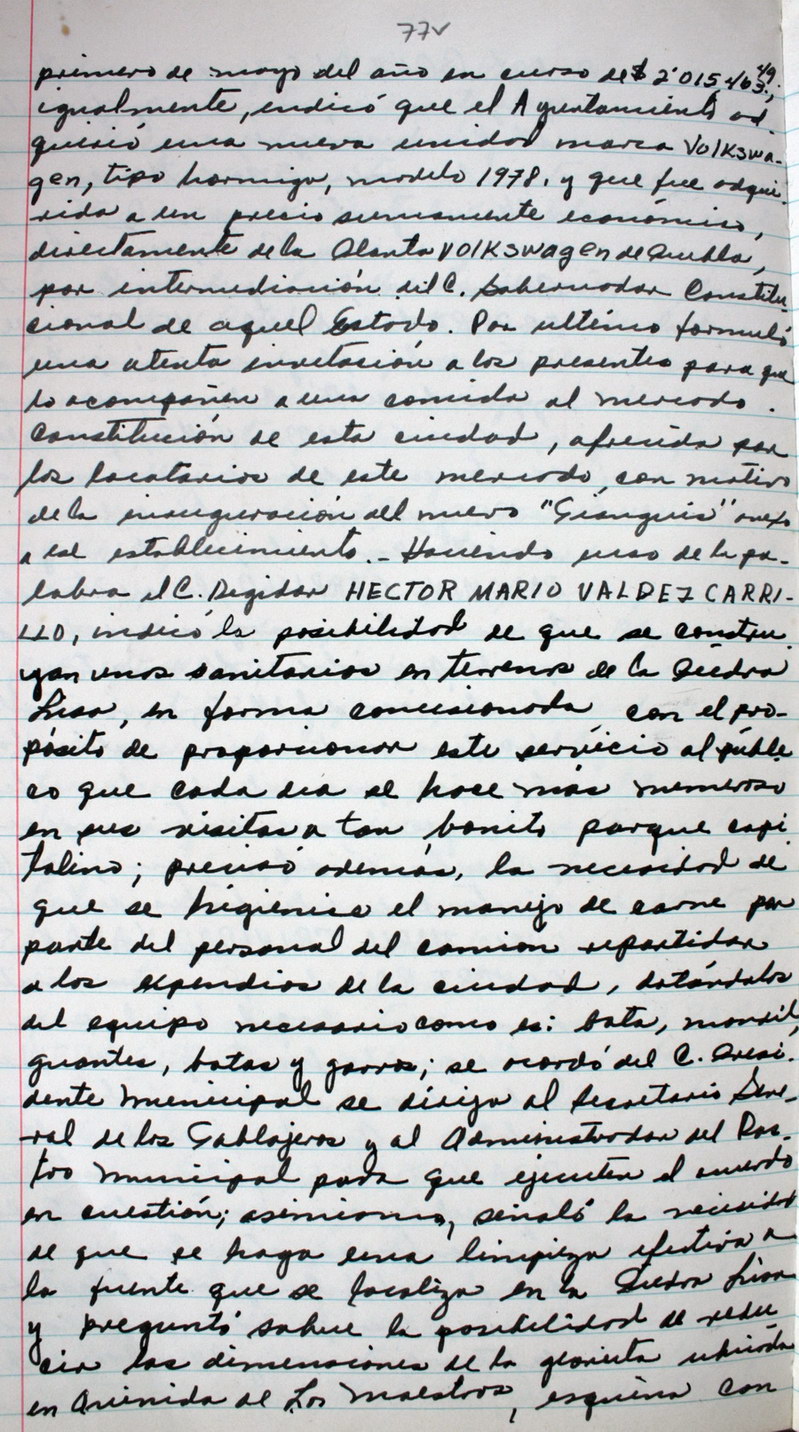 77v
primero de mayo del año en curso de $ 2'015,463.49;
igualmente, indicó que el Ayuntamiento ad-
quirió una nueva unidad marca Volkswa-
gen, tipo hormiga, modelo 1978. y que fue adqui-
rida a un precio sumamente económico,
directamente de la Planta Volkswagen de Puebla,
por intermediación del C. Gobernador Constitu-
cional de aquel Estado. Por ultimo formuló
una atenta invitación a los presentes para que
lo acompañen a una comida al mercado
Constitución de esta ciudad, ofrecida por
los locatarios de este mercado, con motivo
de la inauguración del nuevo "Tianguis" anexo
a ese establecimiento.- Haciendo uso de la pa-
labra el C. Regidor HECTOR MARIO VALDEZ CARRI-
LLO, indicó la posibilidad de que se constru
yan unos sanitarios en terrenos de la Piedra
Lisa, en forma concesionada, con el pro-
pósito de proporcionar este servicio al públi
co que cada dia se hace más numeroso
en sus visitas a tan bonito parque capi
talino; precisó además, la necesidad de
que se higienice el manejo de carne por
parte del personal del camion repartidor
a los expendios de la ciudad, dotándolos
del equipo necesario como es: bata, mandil,
guantes, botas y gorros; se acordó del C. Presi-
dente Municipal se dirija al Secretario Gene-
ral de los Tablajeros y al Administrador del Ras-
tro Municipal para que ejecuten el acuerdo
en cuestión; asimismo, señaló la necesidad
de que se haga una limpieza efectiva a
la fuente que se localiza en la Piedra Lisa
y preguntó sobre la posibilidad de redu
cir las dimensiones de la glorieta ubicada
en Avenida de Los Maestros, esquina con